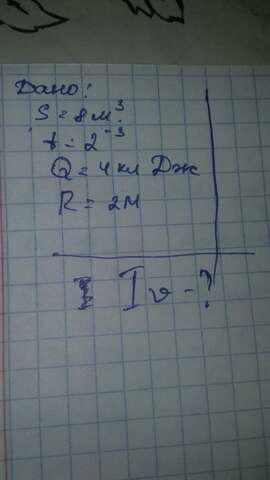 Дано:
S = 8 м³
t = 2⁻³
Q = 4 кл Дж
R = 2м
I v - ?